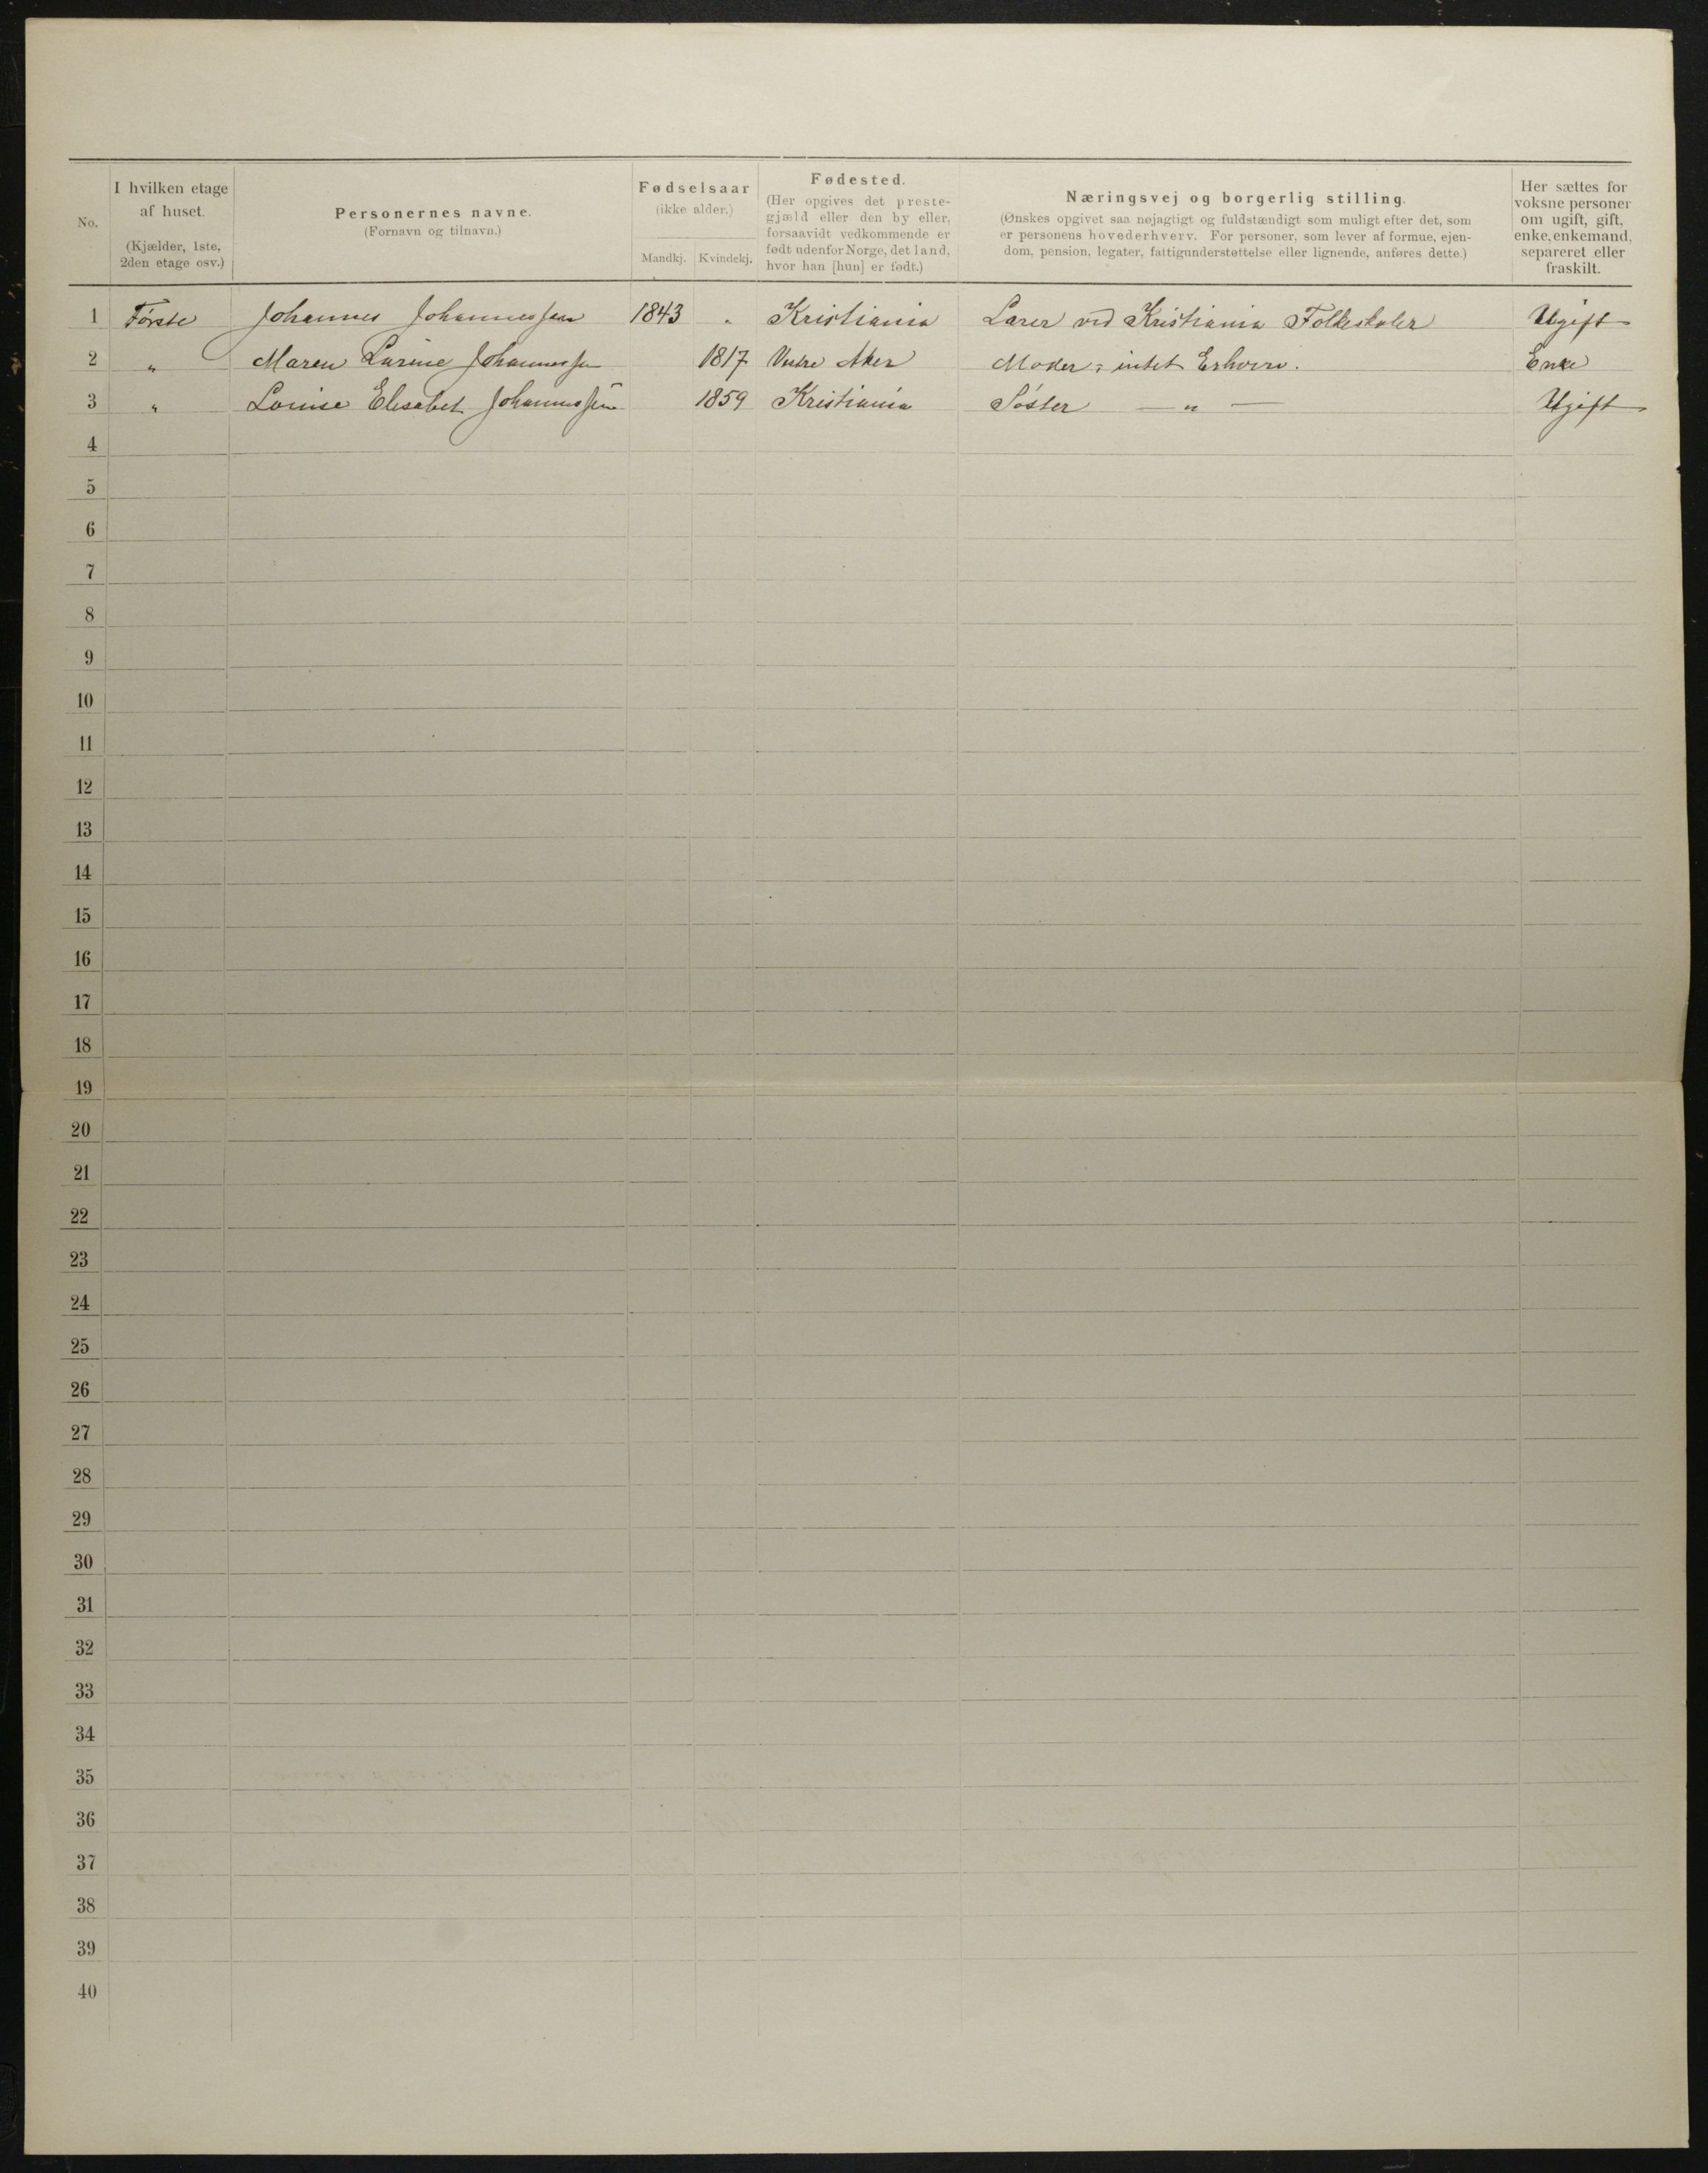 No.
I hvilken etage
af huset.
(Kjælder, 1ste,
2den etage osv.)
Personernes navne.
(Fornavn og tilnavn.)
Fødselsaar
(ikke alder.)
Mandkj. Kvindekj.
Fødested.
(Her opgives det preste-
gjæld eller den by eller,
forsaavidt vedkommende er
født udenfor Norge, det land,
hvor han [hun] er født.)
Næringsvej og borgerlig stilling.
(Ønskes opgivet saa nøjagtigt og fuldstændigt som muligt efter det, som
er personens hovederhverv. For personer, som lever af formue, ejen-
dom, pension, legater, fattigunderstøttelse eller lignende, anføres dette.)
Her sættes for
voksne personer
om ugift, gift,
enke, enkemand,
separeret eller
fraskilt.
1 Første Johannes Johannessen 1843 " Kristiania Lærer ved Kristiania Folkeskoler Ugift
2 " Maren Larine Johannessen 1817 Vestre Aker Moder; intet Erhverv. Enke
3 " Louise Elisabet Johannessen 1859 Kristiania Søster — " — Ugift
4
5
6
7
8
9
10
11
12
13
14
15
16
17
18
19
20
21
22
23
24
25
26
27
28
29
30
31
32
33
34
35
36
37
38
39
40